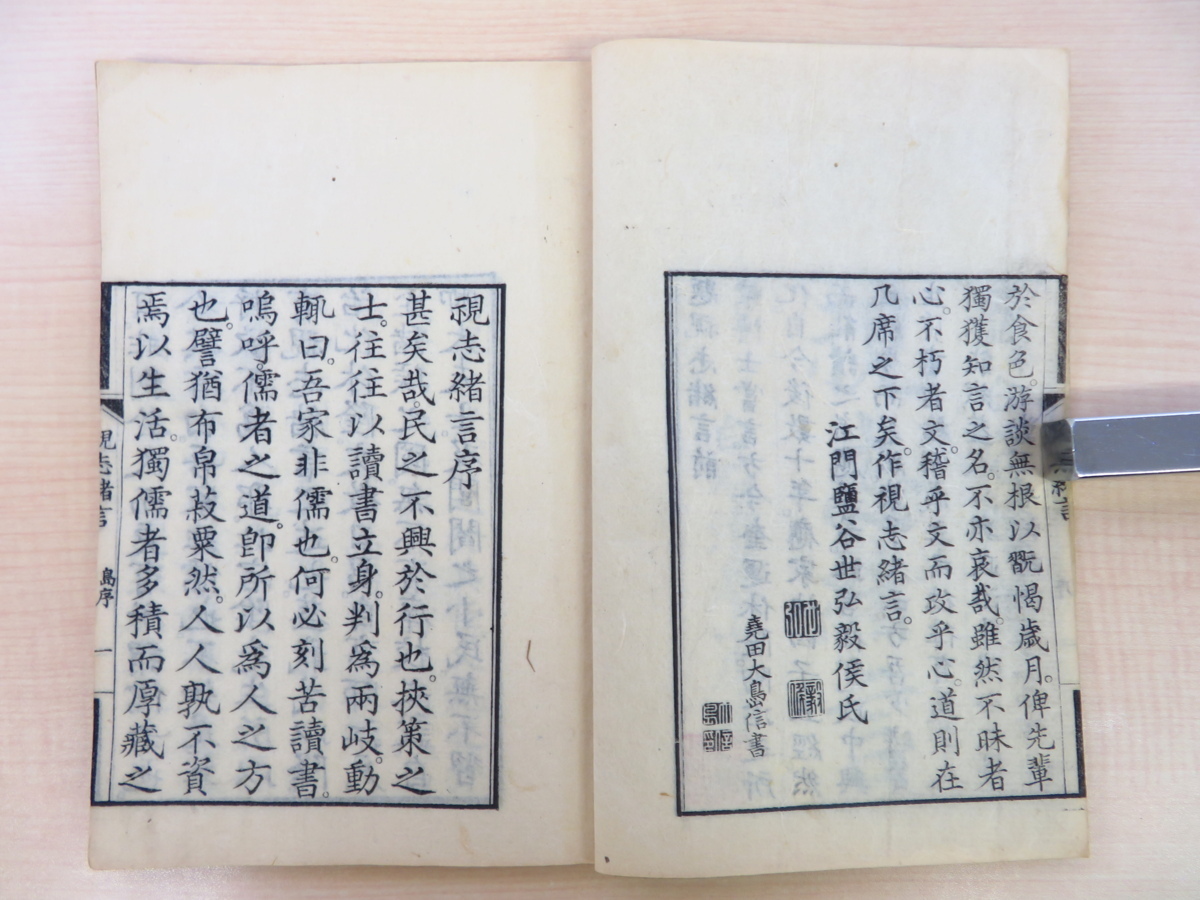 於食色。游談無根以翫愒歲月。俾先輩
獨獲知言之名。不亦哀哉。雖然不昧者
心。不朽者文。稽乎文而攻乎心。道則在
几席之下矣。作視志緒言。
江門鹽谷世弘毅侯氏
堯田大島信書
視志緒言序
甚矣哉。民之不興於行也。挾策之
士。往往以讀書立身。判爲兩岐。動
輒曰。吾家非儒也。何必刻苦讀書。
嗚呼。儒者之道。卽所以爲人之方
也。譬猶布帛菽粟然。人人孰不資
焉以生活。獨儒者多積而厚藏之
視志緒言
島序
一